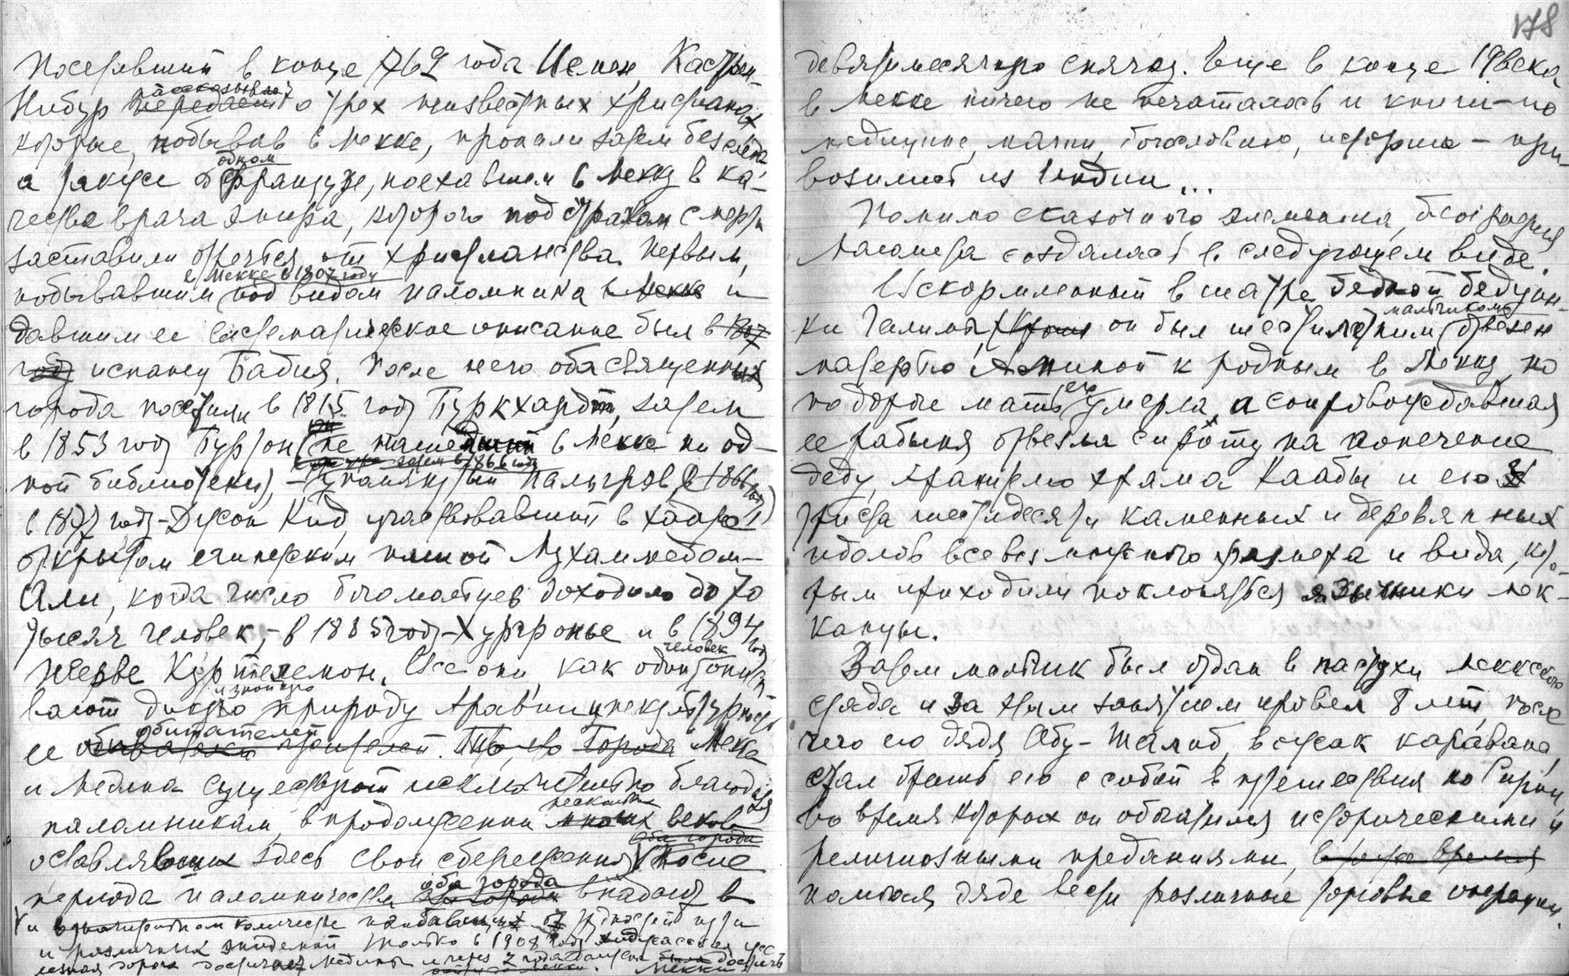 Посетивший в конце 769 года Йемен, Карстен
Нибур рассказывает о трех неизвестных христианах,
которые, побывав в Мекке, пропали затем без следа,
а также об одном французе, поехавшем в Мекку в ка-
честве врача эмира, которого под страхом смерти
заставили отречься от христианства. Первым,
в Мекке в 1807 году
побывавшим под видом паломника в Мекке и
давшим ее систематическое описание был в 1807
году испанец Бадия. После него оба священных
города посетили в 1815 году Буркхардт, затем
в 1853 году Буртон (не нашедший в Мекке ни од-
ной библиотеки), – Пальгрев
в году – Джон Кид, участвовавший в
открытом египетским пашой Мухаммедом-
Али, когда число богомольцев доходило до 70
тысяч человек, – в 1885 году – Хургронье и в 1894 году
Жерве Куртелемон. Все они, как один человек,
дикую природу Аравии и некультурность
ее обитателей. Города Мекка
и Медина существуют исключительно благодаря
паломникам, в продолжении нескольких веков
оставлявших здесь свои сбережения. После
периода паломничества оба города впадают в
и различных эпидемий. Только в 1908 году
178
девятимесячную спячку. Еще в конце 19 века
в Мекке ничего не печаталось и книги – по
медицине, магии, богословию, истории – при-
возились из Индии...
Помимо сказочного элемента, биография
Магомета создалась в следующем виде.
Вскормленный в шатре бедной бедуин-
ки Галимы, он был шестилетним мальчиком отвезен
матерью Аминой к родным в Мекку, но
по дороге мать его умерла, а сопровождавшая
ее рабыня отвезла сироту на попечение
деду, хранителю храма Каабы и его
трехста шестидесяти каменных и деревянных
идолов всевозможного размера и вида, кото-
рым приходили поклоняться язычники мек-
канцы.
Затем мальчик был отдан в пастухи меккского
стада и за этим занятием провел 8 лет, после
чего его дядя Абу-Талиб, вожак каравана,
стал брать его с собой в путешествия по Сирии,
во время которых он обогатился историческими и
религиозными преданиями, в то же время
помогая дяде вести различные торговые операции.